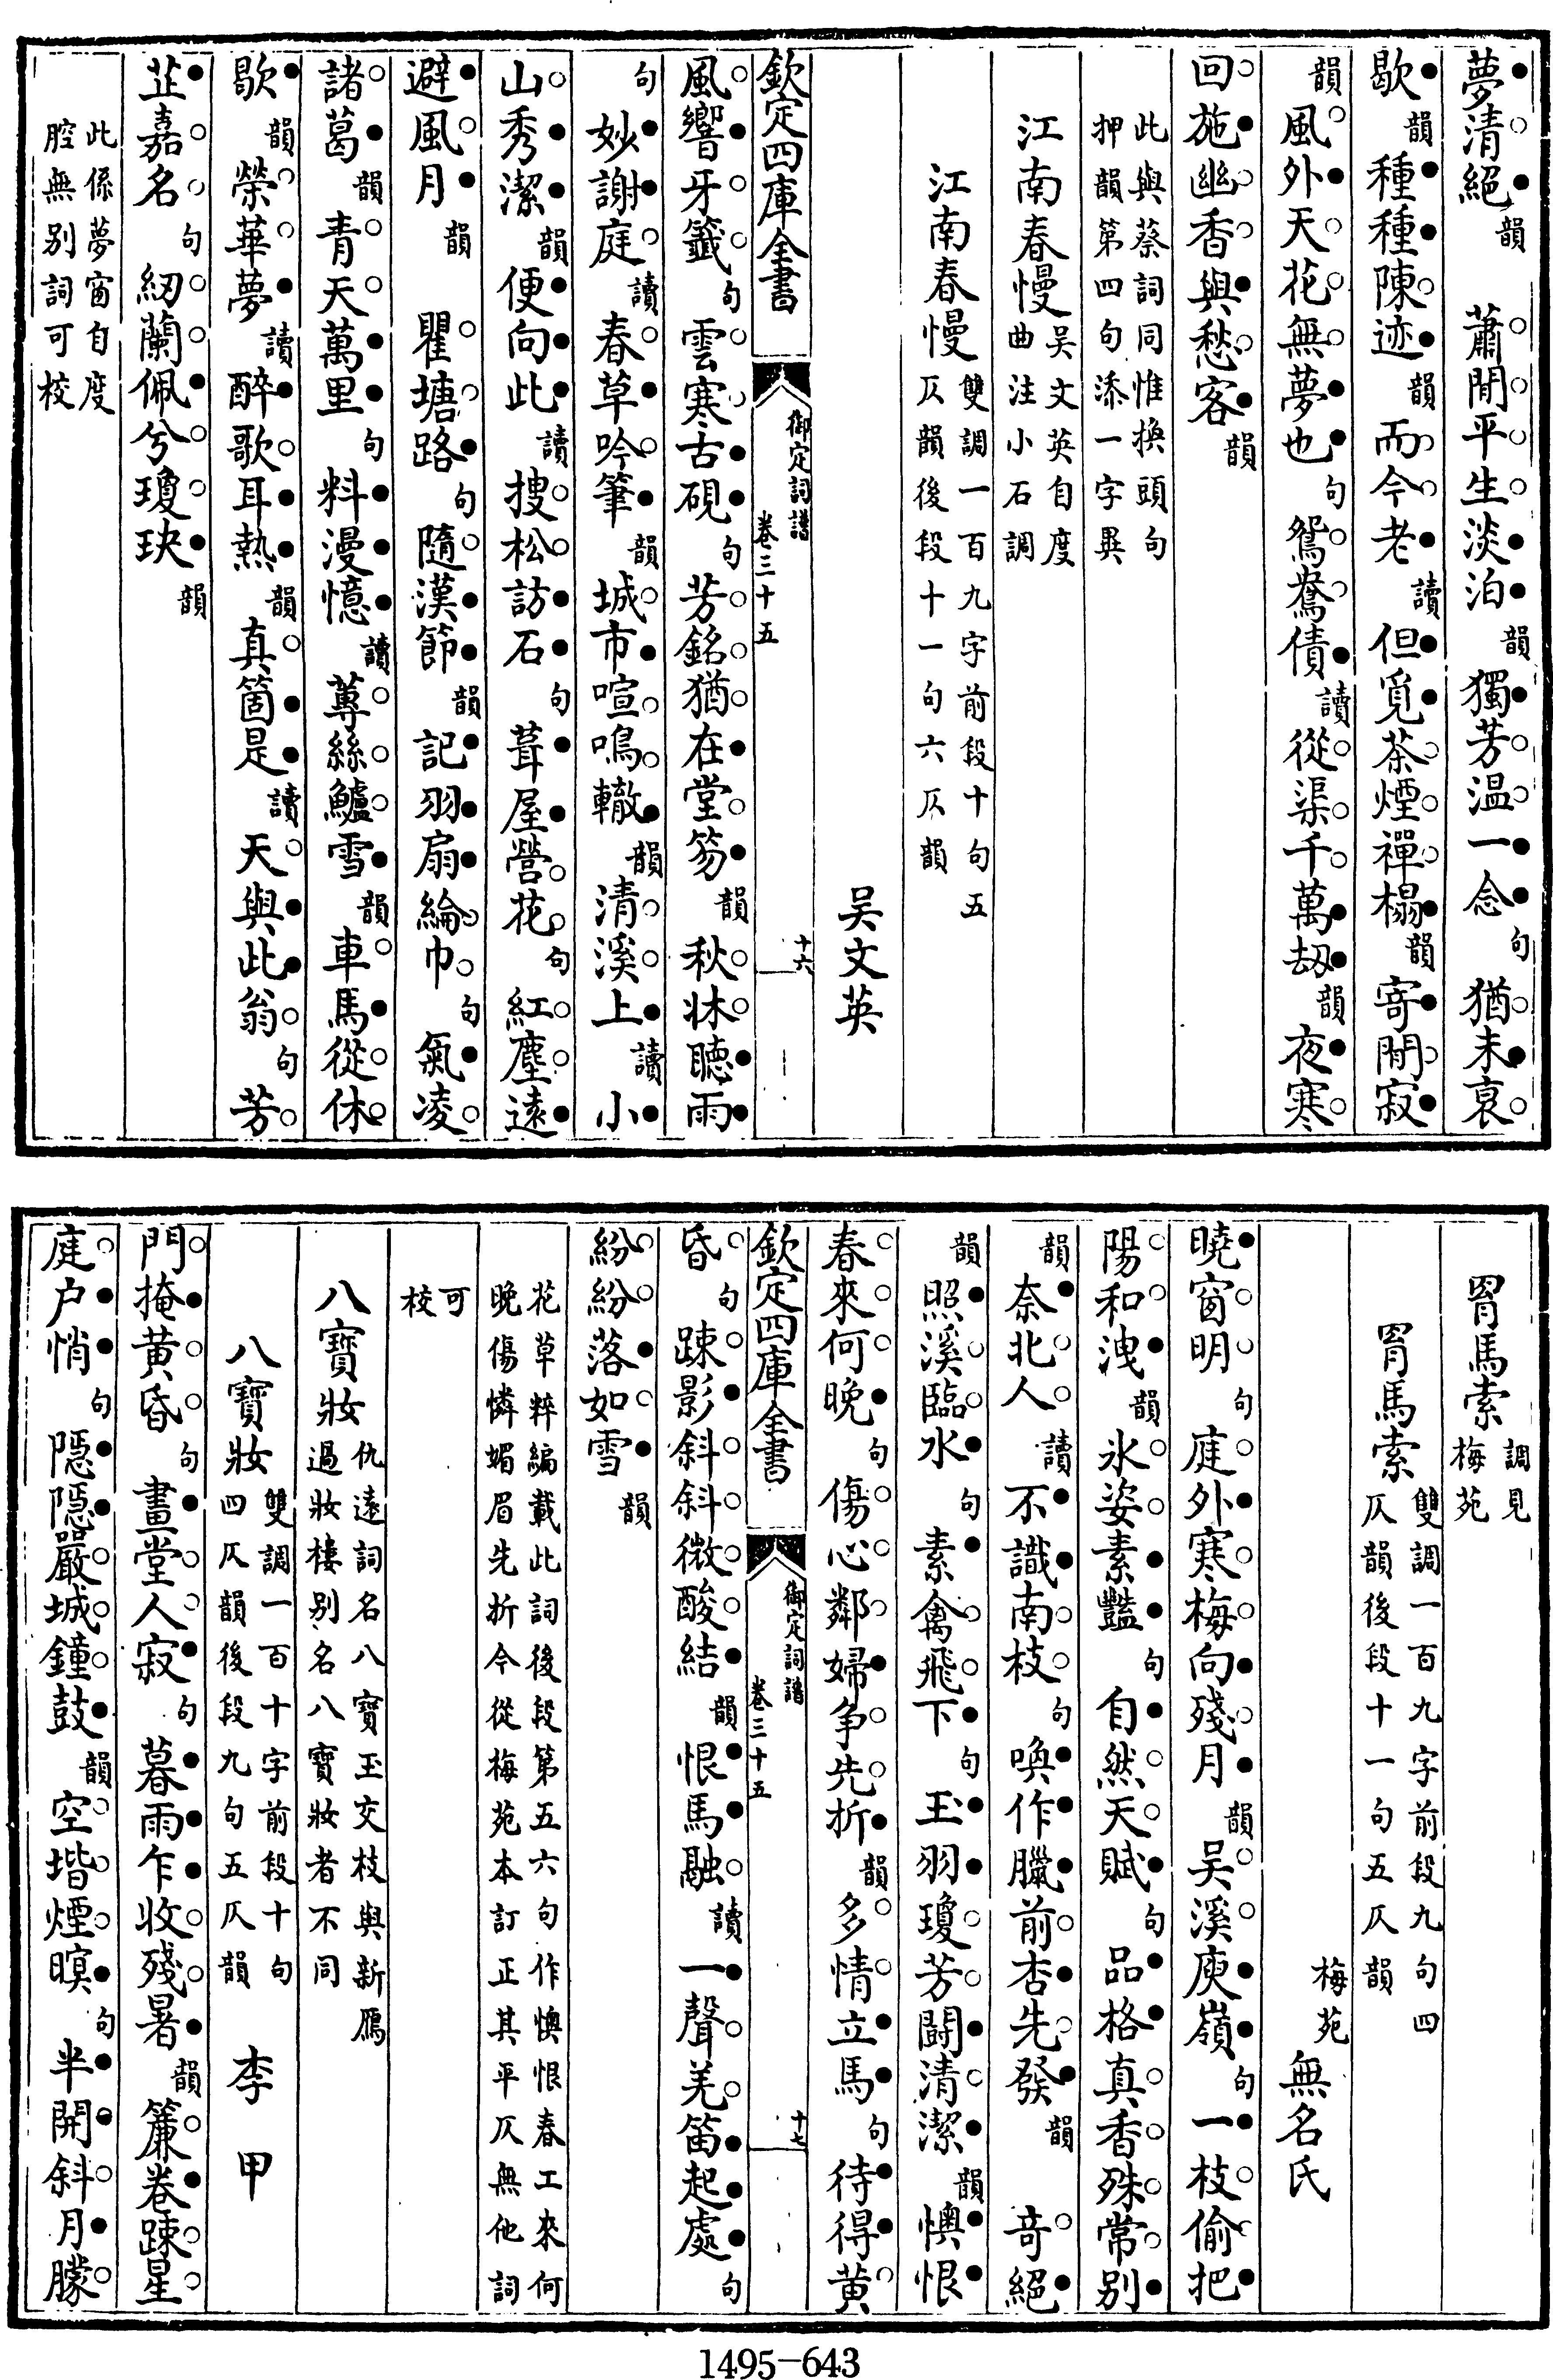 夢清絕韻　蕭閒平生淡泊韻獨芳温一念句猶未衰
歇韻種種陳迹韻而今老讀但覓茶煙禪榻韻寄閒寂
韻風外天花無夢也句鴛鴦債讀從渠千萬刼韻夜寒
回施幽香與愁客韻
此與蔡詞同惟換頭句
押韻第四句添一字異
江南春慢吳文英自度
曲注小石調
江南春慢雙調一百九字前段十句五
仄韻後段十一句六仄韻
吳文英
欽定四庫全書
御定詞譜
卷三十五
十六
風響牙籤句雲寒古硯句芳銘猶在堂笏韻秋牀聽雨
句妙謝庭讀春草吟筆韻城市喧鳴轍韻清溪上讀小
山秀潔韻便向此讀搜松訪石句葺屋營花句紅塵遠
避風月韻　瞿塘路句隨漢節韻記羽扇綸巾句氣凌
諸葛韻青天萬里句料漫憶讀蓴絲鱸雪韻車馬從休
歇韻榮華夢讀醉歌耳熱韻真箇是讀天與此翁句芳
芷嘉名句紉蘭佩兮瓊玦韻
此係夢窗自度
腔無別詞可校
罥馬索調見
梅苑
罥馬索雙調一百九字前段九句四
仄韻後段十一句五仄韻
梅苑無名氏
曉窗明句庭外寒梅向殘月韻吳溪庾嶺句一枝偷把
陽和洩韻氷姿素豔句自然天賦句品格真香殊常別
韻奈北人讀不識南枝句喚作臘前杏先發韻　奇絕
韻照溪臨水句素禽飛下句玉羽瓊芳鬭清潔韻懊恨
春來何晚句傷心鄰婦争先折韻多情立馬句待得黄
欽定四庫全書
御定詞譜
卷三十五
十七
昏句踈影斜斜微酸結韻恨馬融讀一聲羌笛起處句
紛紛落如雪韻
花草粹編載此詞後段第五六句作懊恨春工來何
晚傷憐媚眉先折今從梅苑本訂正其平仄無他詞
可
校
八寶妝仇遠詞名八寶玉交枝與新鴈
過妝樓別名八寶妝者不同
八寶妝雙調一百十字前段十句
四仄韻後段九句五仄韻
李甲
門掩黄昏句畫堂人寂句暮雨乍收殘暑韻簾卷踈星
庭户悄句隠隠嚴城鐘鼓韻空堦煙暝句半開斜月朦
1495-643